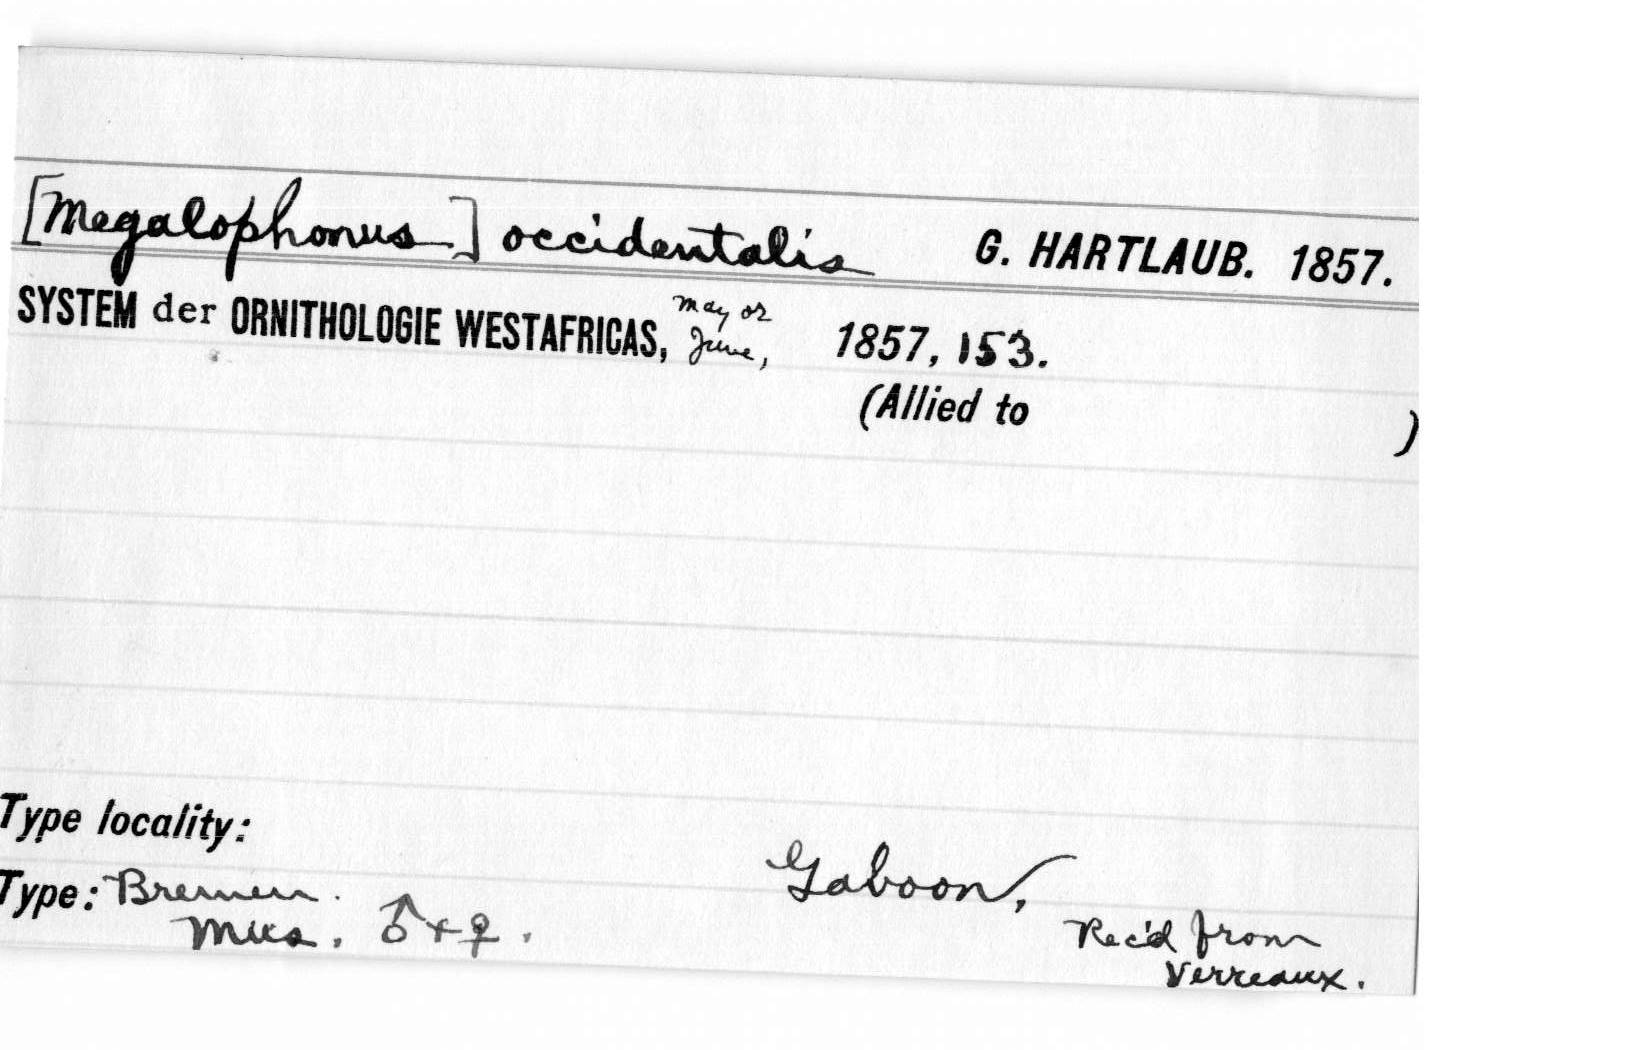 [Megalophonus] occidentalis G. HARTLAUB. 1857.
SYSTEM der ORNITHOLOGIE WESTAFRICAS, May or June, 1857, 153.
(Allied to )
Type locality:
Gaboon,
Type: Bremen.
Mus. ♂ + ♀.
Rec'd from
Verreaux.